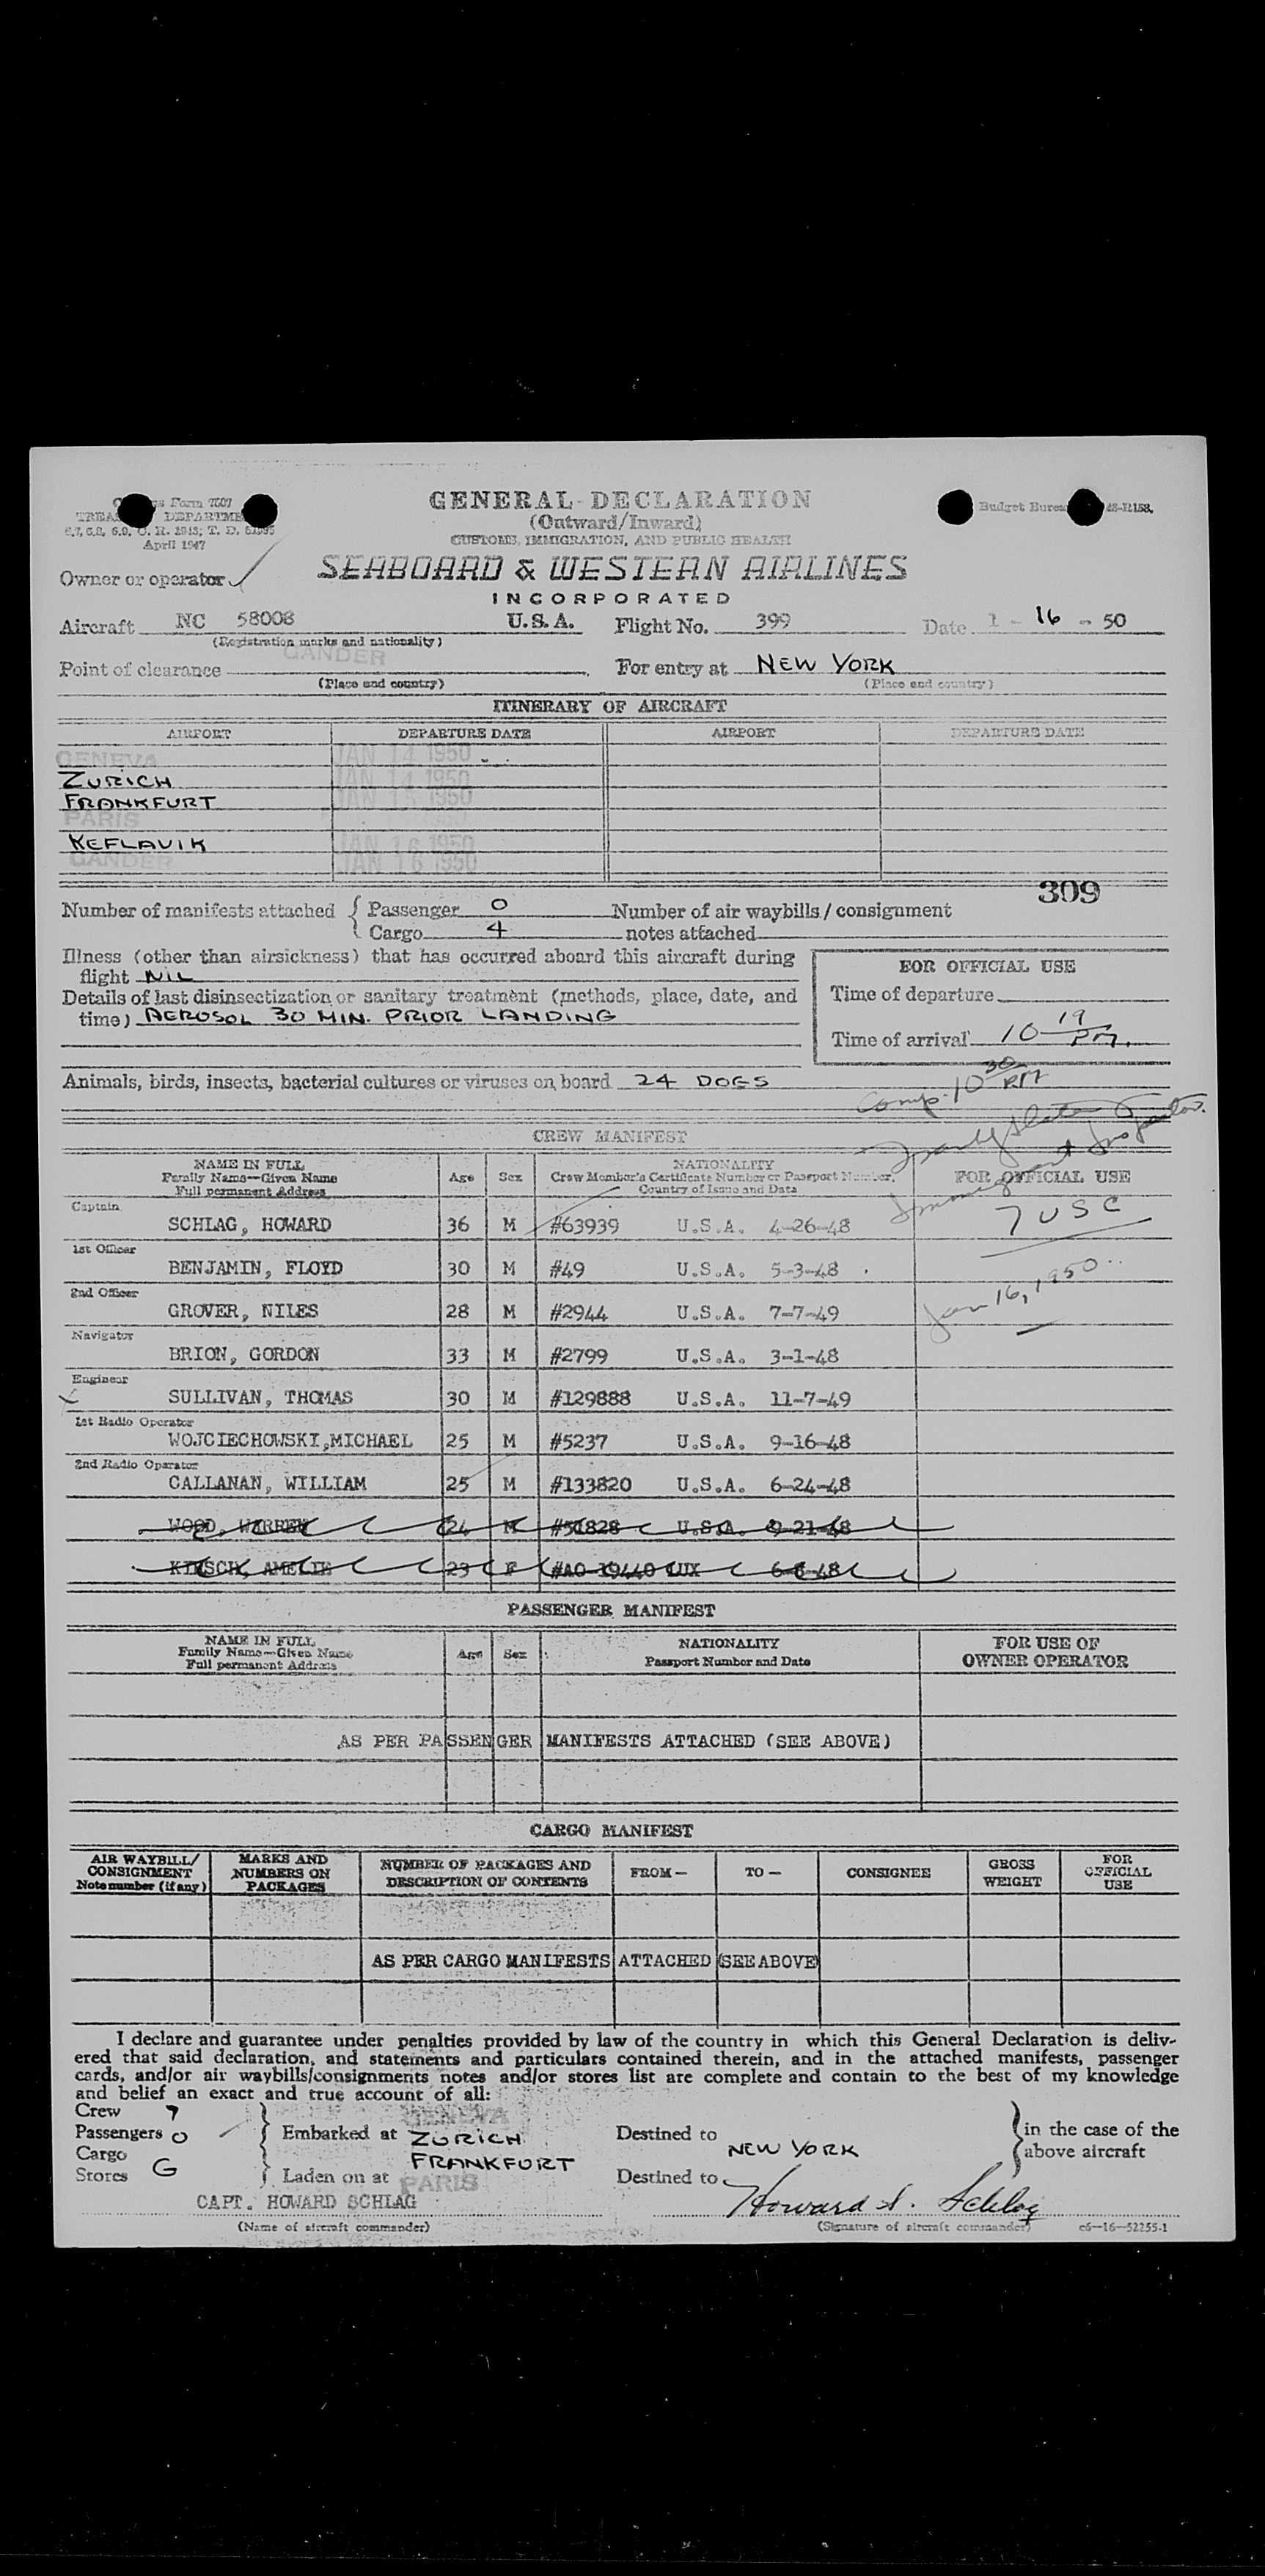 s Form 7507
TREA DEPARTME
April 1947
GENERAL DECLARATION
(Outward/Inward)
CUSTOMS, IMMIGRATION, AND PUBLIC HEALTH
Budget Burea
Owner or operator
SEABOARD & WESTERN AIRLINES
INCORPORATED
Aircraft NC 58008 U.S.A. Flight No. 399 Date 1 - 16 - 50
(Registration marks and nationality)
Point of clearance GANDER For entry at NEW YORK
(Place and country) (Place and country)
ITINERARY OF AIRCRAFT
AIRPORT DEPARTURE DATE AIRPORT DEPARTURE DATE
GENEVA JAN 14 1950
ZURICH JAN 14 1950
FRANKFURT JAN 15 1950
PARIS
KEFLAVIK JAN 16 1950
GANDER JAN 16 1950
309
Number of manifests attached { Passenger 0 Number of air waybills / consignment
Cargo 4 notes attached
Illness (other than airsickness) that has occurred aboard this aircraft during
flight NIL
FOR OFFICIAL USE
Details of last disinsectization or sanitary treatment (methods, place, date, and
time) AEROSOL 30 MIN. PRIOR LANDING
Time of departure
Time of arrival 10 19 PM.
Animals, birds, insects, bacterial cultures or viruses on board 24 DOGS
Comp. 10 30 PM
Immigrant Inspector.
CREW MANIFEST
NAME IN FULL
Family Name--Given Name
Full permanent Address
Age Sex
NATIONALITY
Crew Member's Certificate Number or Passport Number,
Country of Issue and Date
FOR OFFICIAL USE
7 USC
Jan 16, 1950
Captain
SCHLAG, HOWARD 36 M #63939 U.S.A. 4-26-48
1st Officer
BENJAMIN, FLOYD 30 M #49 U.S.A. 5-3-48
2nd Officer
GROVER, NILES 28 M #2944 U.S.A. 7-7-49
Navigator
BRION, GORDON 33 M #2799 U.S.A. 3-1-48
Engineer
SULLIVAN, THOMAS 30 M #129888 U.S.A. 11-7-49
1st Radio Operator
WOJCIECHOWSKI,MICHAEL 25 M #5237 U.S.A. 9-16-48
2nd Radio Operator
CALLANAN, WILLIAM 25 M #133820 U.S.A. 6-24-48
WOOD, WARREN 24 M #51828 U.S.A. 9-21-48
KIRSCH, AMELIE 23 F #AO-19440 LUX 6-8-48
PASSENGER MANIFEST
NAME IN FULL
Family Name--Given Name
Full permanent Address
Age Sex
NATIONALITY
Passport Number and Date
FOR USE OF
OWNER OPERATOR
AS PER PASSENGER MANIFESTS ATTACHED (SEE ABOVE)
CARGO MANIFEST
AIR WAYBILL/
CONSIGNMENT
Note number (if any)
MARKS AND
NUMBERS ON
PACKAGES
NUMBER OF PACKAGES AND
DESCRIPTION OF CONTENTS
FROM— TO— CONSIGNEE
GROSS
WEIGHT
FOR
OFFICIAL
USE
AS PER CARGO MANIFESTS ATTACHED (SEE ABOVE)
I declare and guarantee under penalties provided by law of the country in which this General Declaration is deliv-
ered that said declaration, and statements and particulars contained therein, and in the attached manifests, passenger
cards, and/or air waybills/consignments notes and/or stores list are complete and contain to the best of my knowledge
and belief an exact and true account of all:
Crew 7 GENEVA
Passengers 0 Embarked at ZURICH Destined to NEW YORK in the case of the
Cargo FRANKFURT above aircraft
Stores G Laden on at PARIS Destined to
CAPT. HOWARD SCHLAG Howard S. Schlag
(Name of aircraft commander) (Signature of aircraft commander) c6—16—52255-1